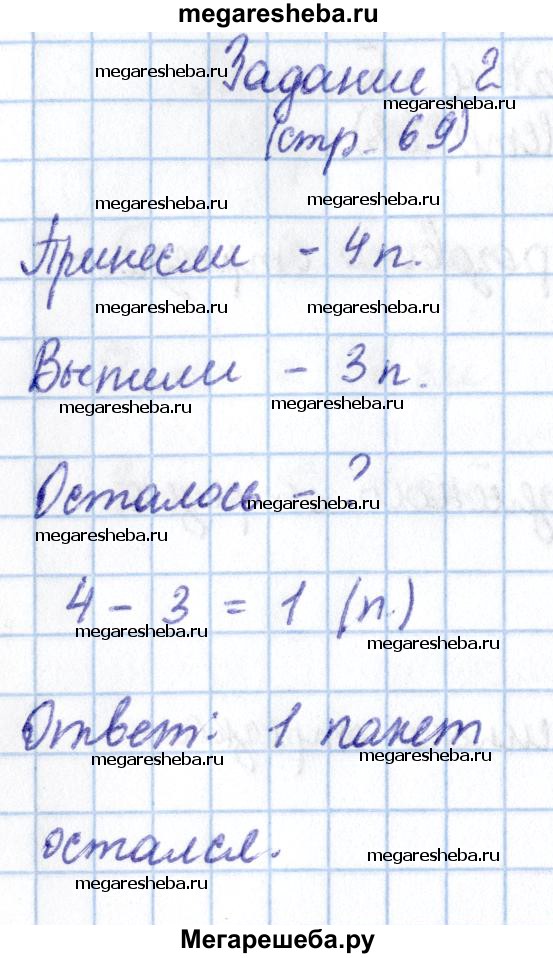 megaresheba.ru
Задание 2
megaresheba.ru megaresheba.ru
(стр. 69)
megaresheba.ru megaresheba.ru
Принесли - 4 п.
megaresheba.ru megaresheba.ru
Выпили - 3 п.
megaresheba.ru megaresheba.ru
Осталось - ?
megaresheba.ru megaresheba.ru
4 - 3 = 1 (п.)
megaresheba.ru megaresheba.ru
Ответ: 1 пакет
megaresheba.ru megaresheba.ru
остался.
megaresheba.ru megaresheba.ru
Мегарешеба.ру